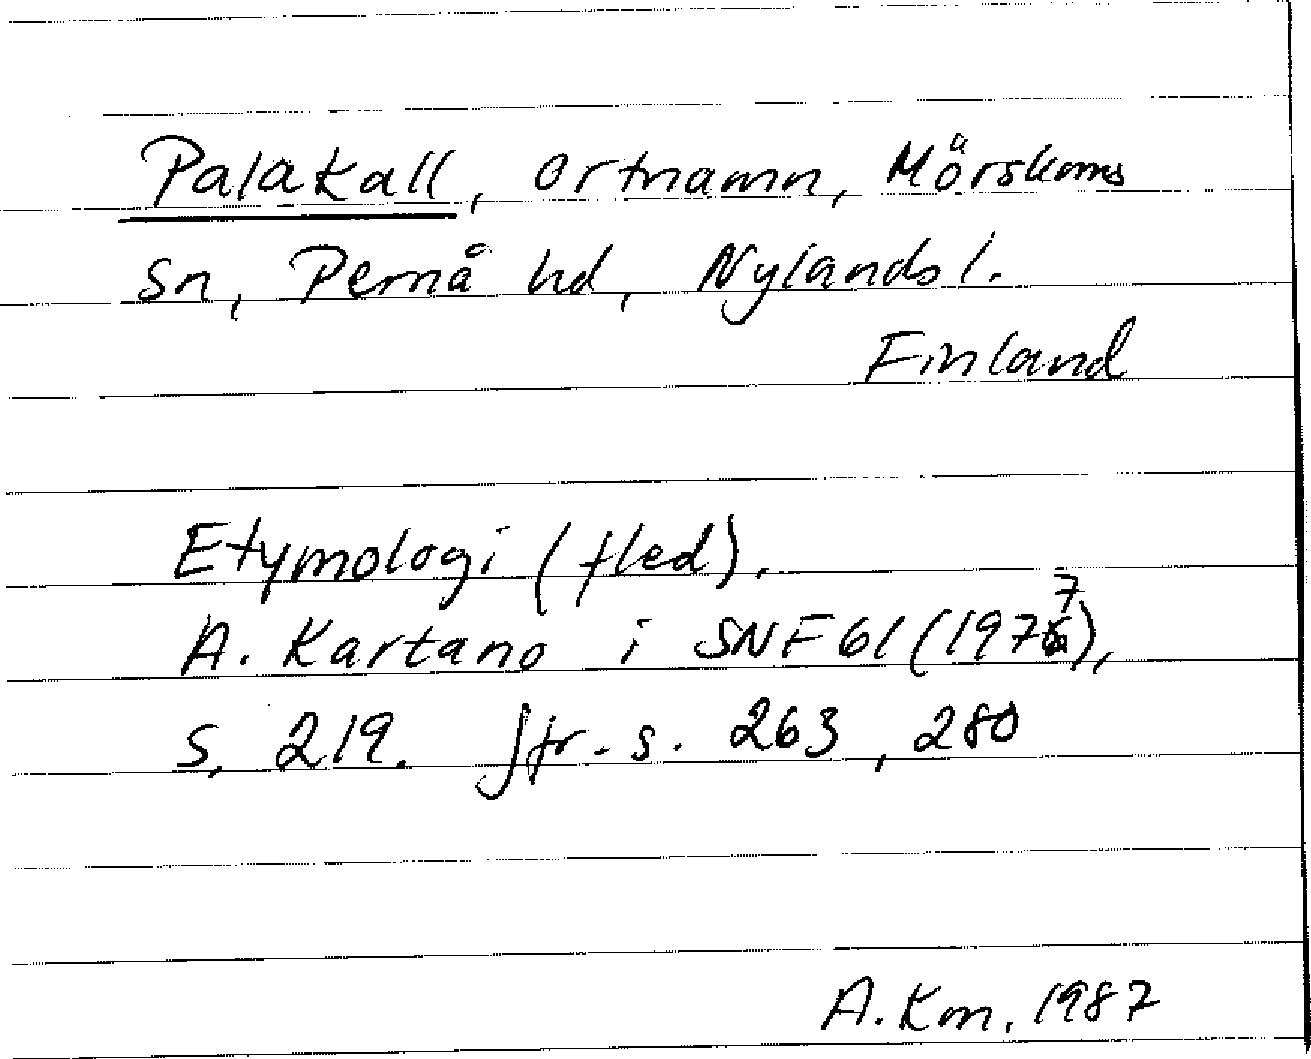 Palakall, ortnamn, Mörskoms
sn, Pernå hd, Nylands l.
Finland
Etymologi (fled).
A. Kartano i SNF 61 (1977),
s. 219. Jfr. s. 263, 280
A. Km. 1987